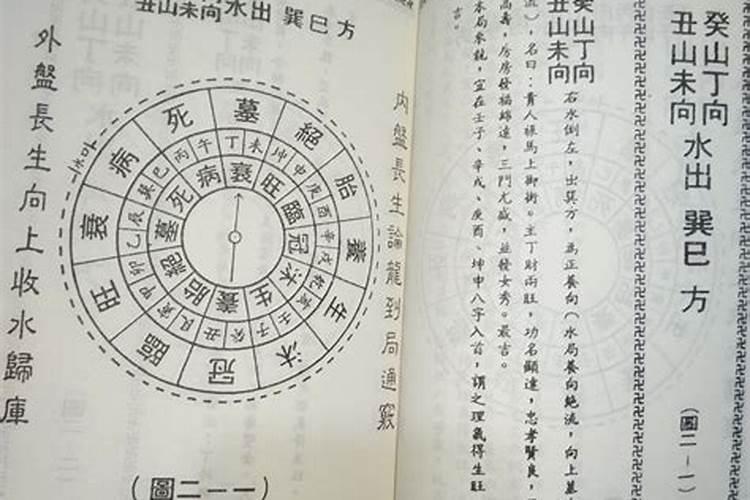 癸山丁向
丑山未向
水出 巽巳 方
(圖二—一)
癸山丁向
丑山未向
右水倒左,出巽方,為正養向(水局養向絕流,向上墓
流),名曰:貴人祿馬上御街。主丁財兩旺,功名顯達,忠孝賢良,
高壽,房房發福綿遠,三門尤盛,並發女秀。最吉。
本局來龍,宜在壬子、辛戌、庚酉、坤申八字入首,謂之理氣得生旺
吉。
丑山未向 水出 巽巳 方
內盤長生論龍到局通竅
墓 絕 胎 養 生 沐 冠 臨 旺 衰 病 死
丁 未 坤 申 庚 酉 辛 戌 乾 亥 壬 子 癸 丑 艮 寅 甲 卯 乙 辰 巽 巳 丙 午
衰 旺 臨 冠 沐 生 養 胎 絕 墓 死 病
外盤長生向上收水歸庫
(圖二一一)